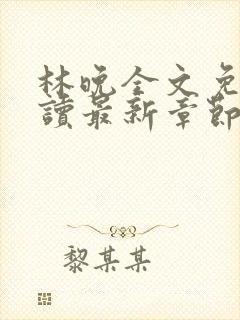 林晚全文免
讀最新章節
黎某某